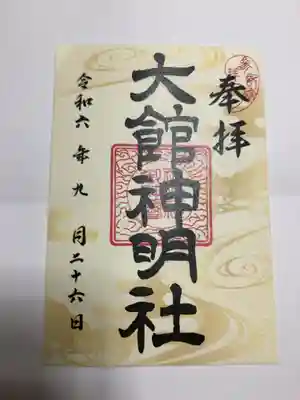 奉拝
大館神明社
令和六年九月二十六日